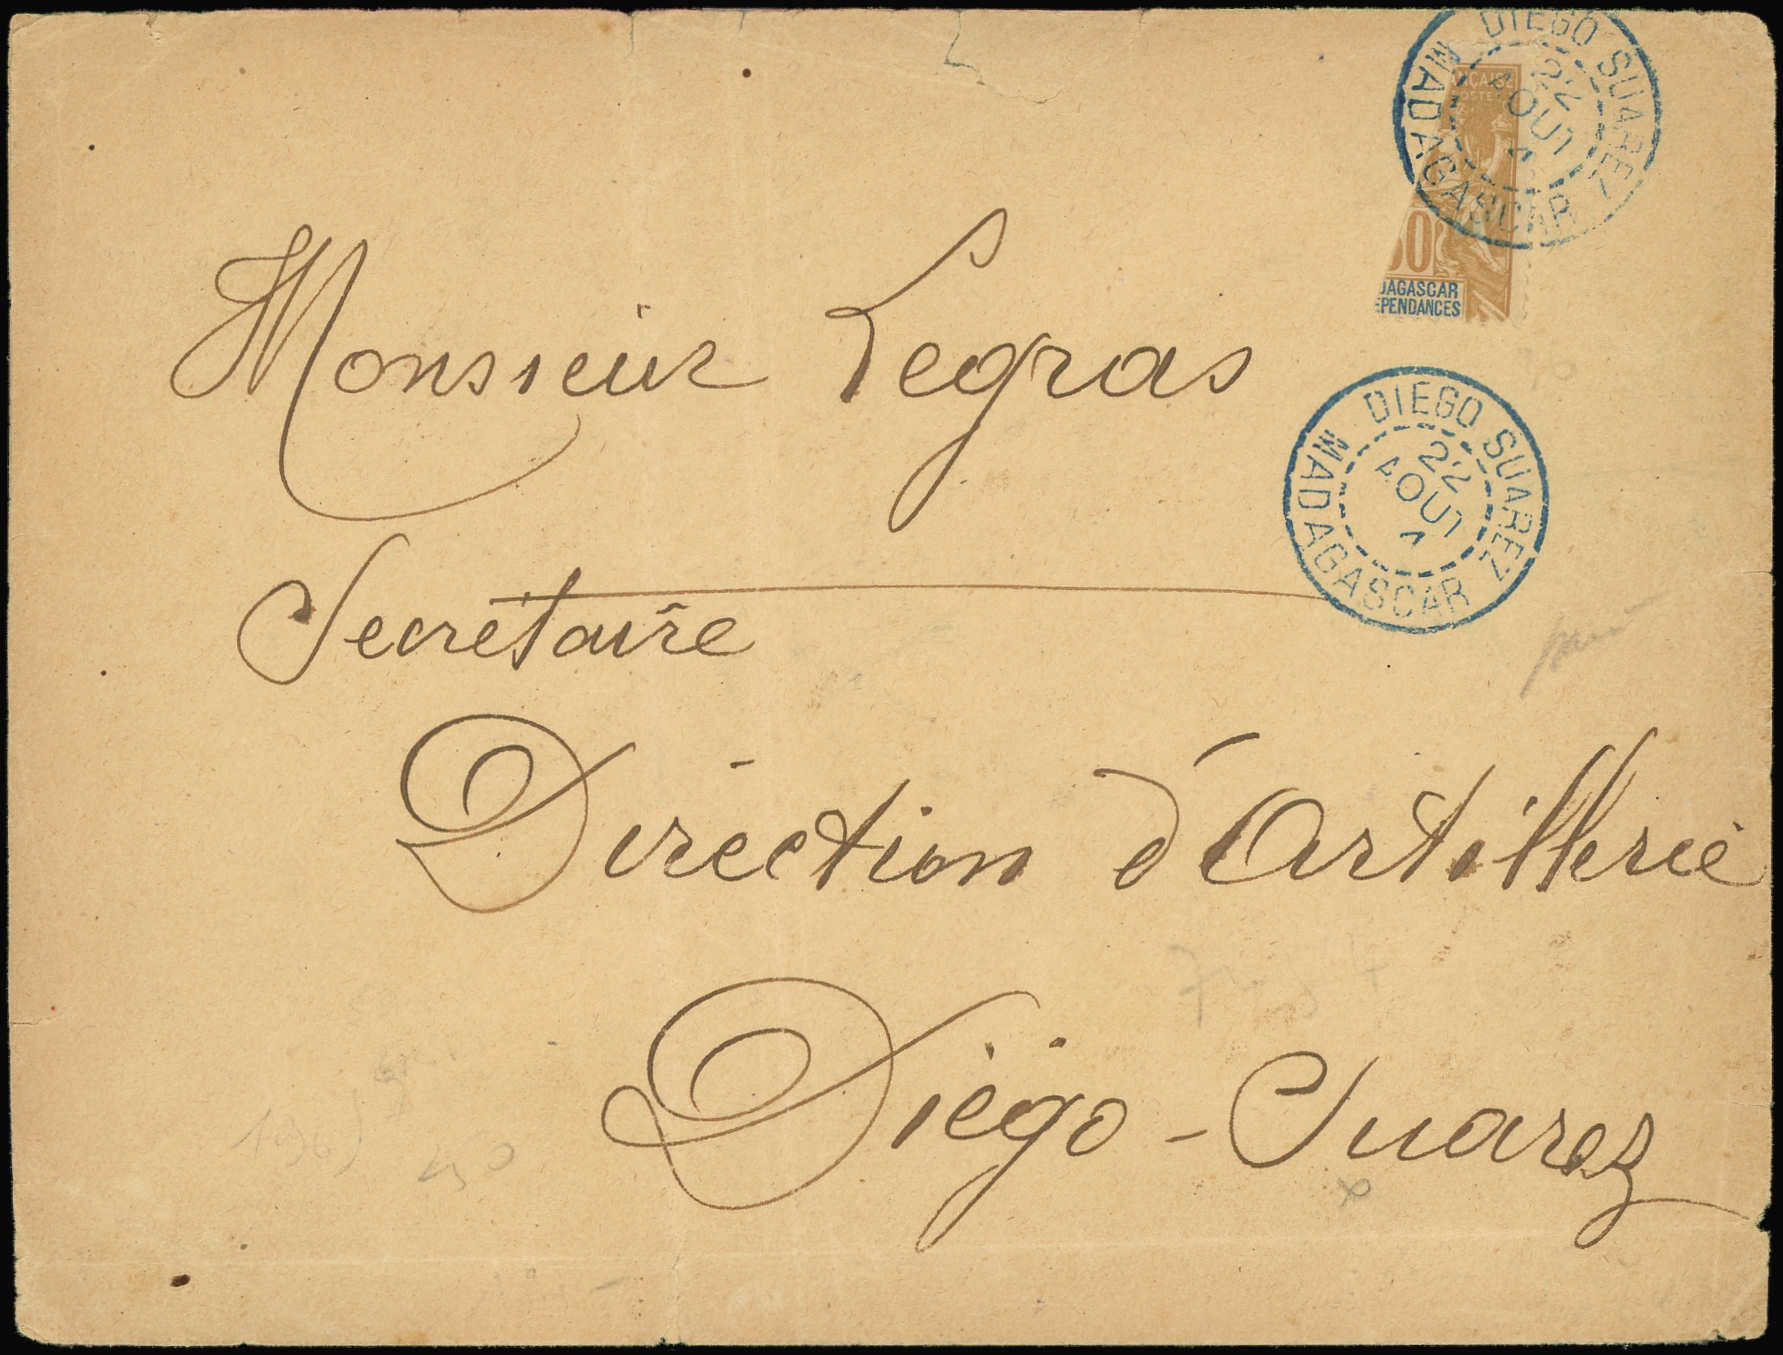 DIEGO SUAREZ
22
AOUT
MADAGASCAR
30
DAGASCAR
EPENDANCES
Monsieur Legras
DIEGO SUAREZ
22
AOUT
MADAGASCAR
Secrétaire
Direction d'Artillerie
Diégo-Suarez
50